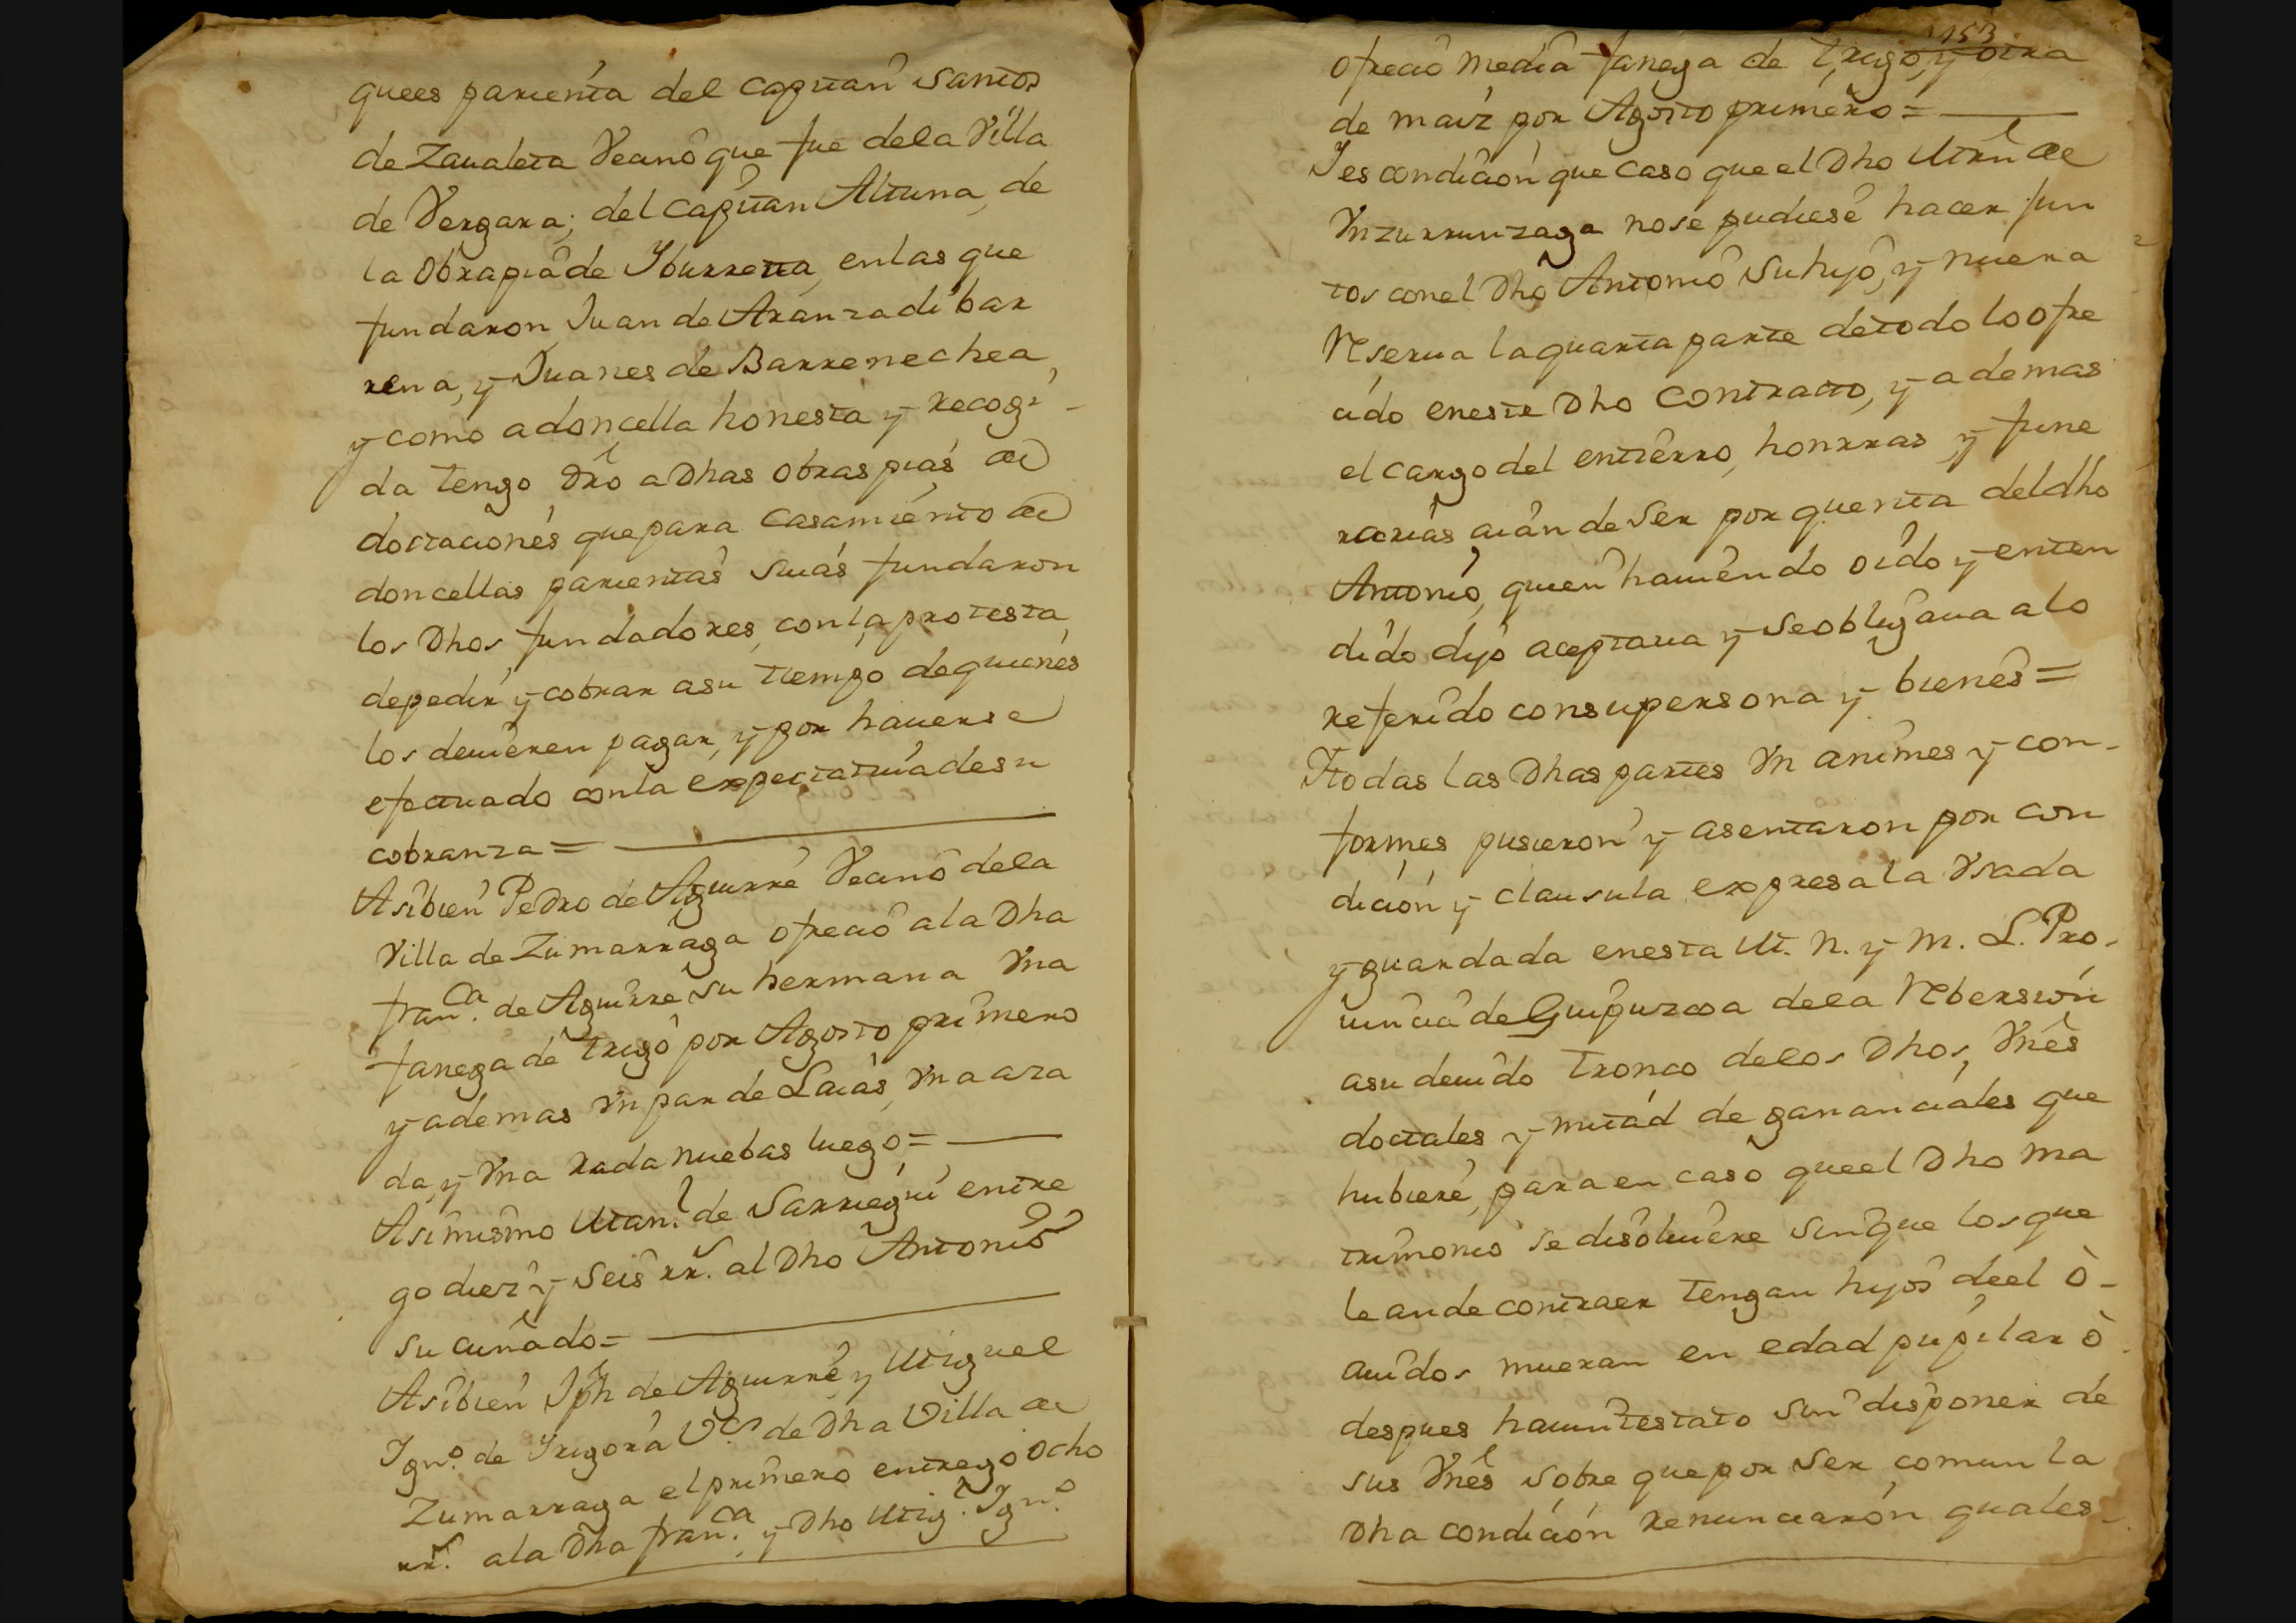 quees parienta del Capitan Santos
de Zaualeta Vecino que fue dela Villa
de Vergara; del Capitan Altuna, de
la Obrapia de Yburreta, en las que
fundaron Juan de Aranzadibar
rena, y Juanes de Barrenechea,
y como a doncella honesta y Recogi-
da tengo dro a Dhas obras pias de
doctaciones que para Casamiento de
doncellas parientas suias fundaron
los Dhos fundadores, con la protesta
de pedir y cobrar asu tiempo de quienes
los deuieren pagar, y por hauerse
efectuado con la expectatiua de su
cobranza =
Asibien Pedro de Aguirre Vecino dela
Villa de Zumarraga ofrecio ala Dha
fran.ca de Aguirre su hermana Vna
fanega de trigo por Agosto primero
y ademas Vn par de Laias, Vna aza
da, y Vna Rada nuebas luego =
Asimismo Man.l de Sarriegui entre
go diez y seis rr.s al Dho Antonio
su cuñado =
Asibien Jph de Aguirre, y Miguel
Ygn.o de Yrigora V.s de Dha Villa de
Zumarraga el primero entrego ocho
rr.s ala Dha fran.ca y Dho Mig.l Ygn.o
153
ofrecio media fanega de trigo, y otra
de maiz por Agosto primero =
Y es condicion que caso que el Dho Mrñ de
Ynzurrunzaga nose pudiese hacer jun
tos con el Dho Antonio Su hijo, y nuera
Reserua la quarta parte de todo lo ofre
cido eneste Dho Contracto, y ademas
el cargo del entierro, honrras, y fune
rarias aian de Ser por quenta del dho
Antonio, quien hauiendo oido y enten
dido dijo aceptaua y se obligaua alo
referido consu persona y bienes =
Ytodas las Dhas partes Vnanimes y con-
formes pusieron y asentaron por con
dicion y clausula expresa la Vsada
y guardada enesta M. N. y M. L. Pro-
uincia de Guipuzcoa dela Rebersion
asu deuido tronco delos Dhos, Vnes
doctales y mitad de gananciales que
hubiere, para en caso que el Dho ma
trimonio se disoluiere sinque los que
le an de contraer tengan hijos de el ò-
auidos mueran en edad pupilar ò
despues hauintestato sin disponer de
sus Vnes sobre que por ser comun la
Dha condicion renunciaron quales-